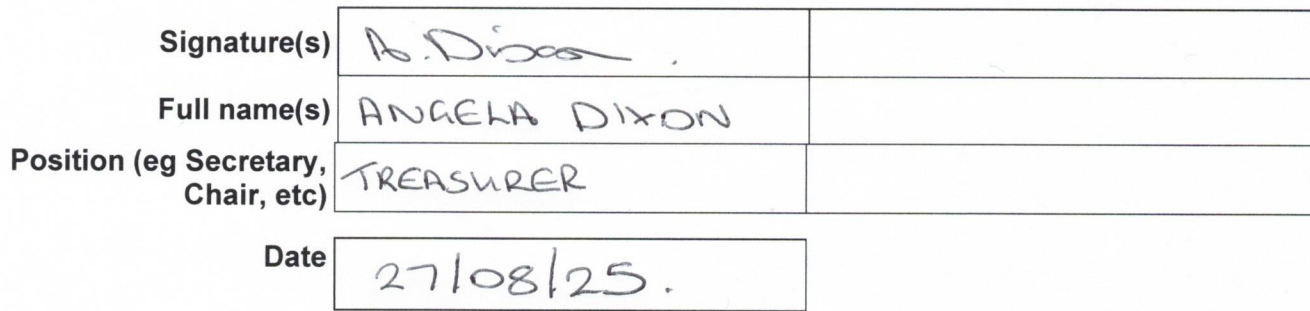 Signature(s) A. Dixon.
Full name(s) ANGELA DIXON
Position (eg Secretary, TREASURER
Chair, etc)
Date 27/08/25.